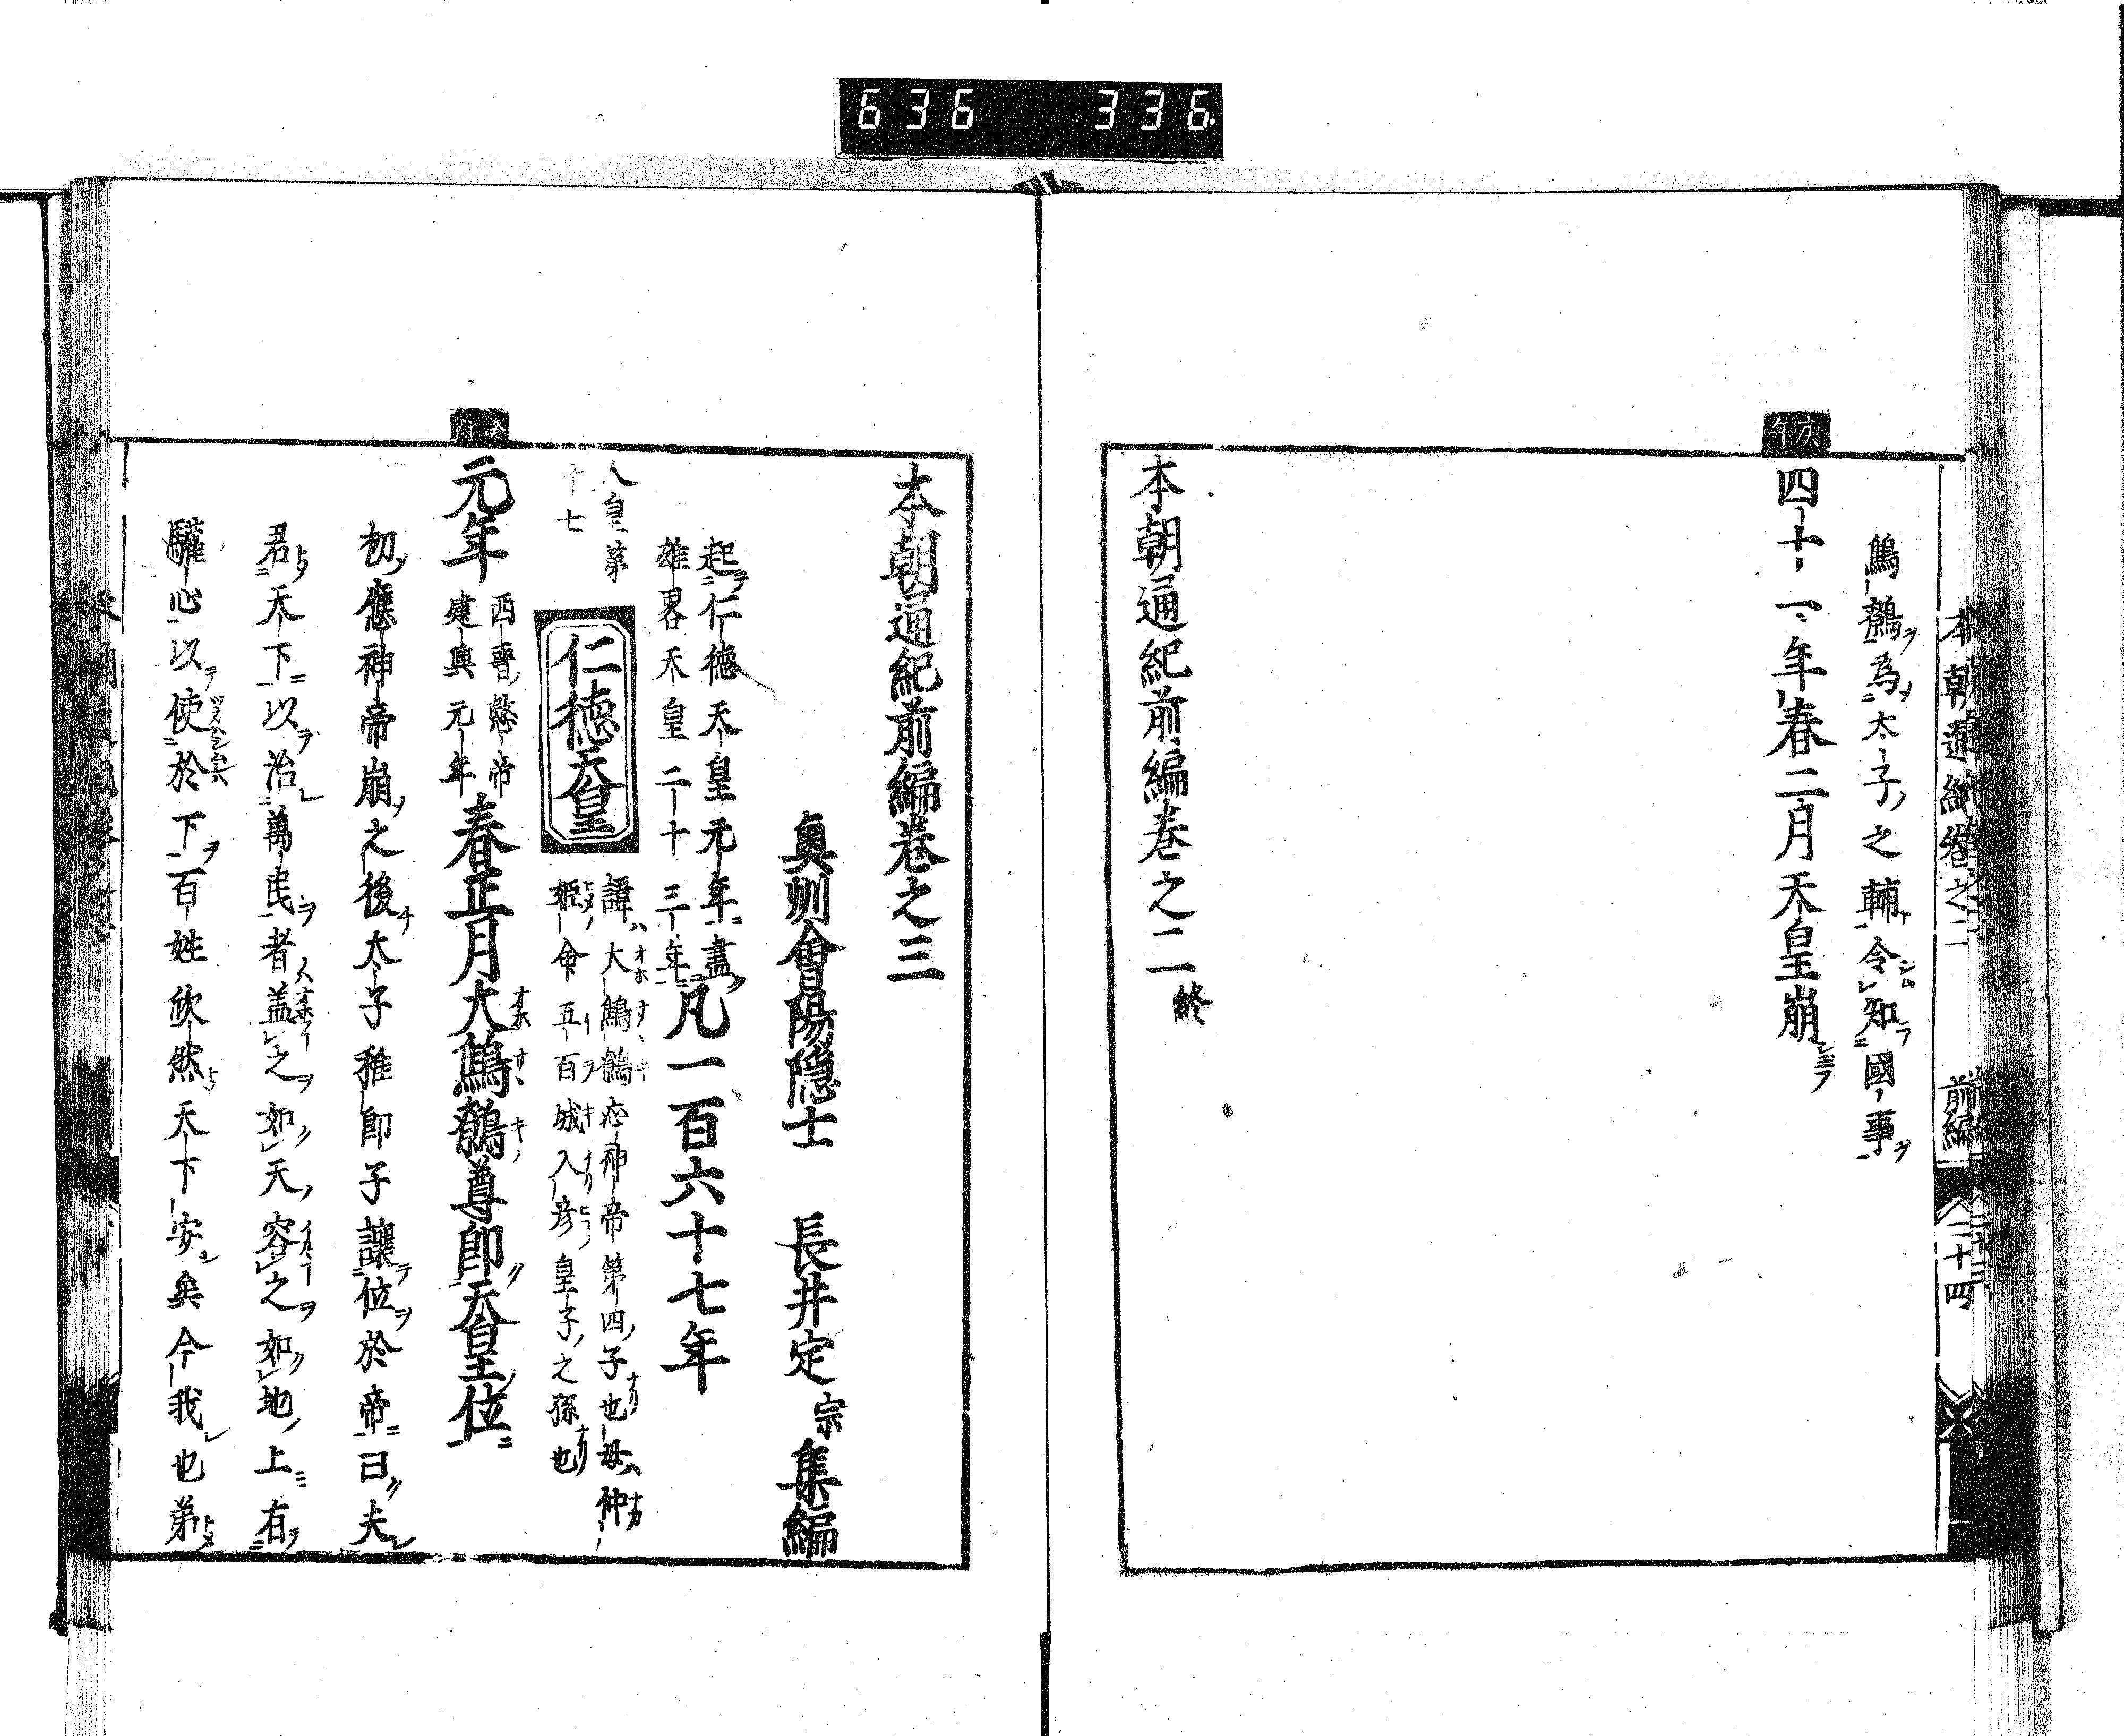 636 336
本朝通紀卷之二 前編 二十四
鷦鷯為太子之輔令知國事
四十一年春二月天皇崩
本朝通紀前編卷之二終
本朝通紀前編卷之三
奧州會陽隱士 長井定宗集編
起仁德天皇元年盡
雄畧天皇二十三年
凡一百六十七年
人皇第
十七
仁德天皇
諱大鷦鷯應神帝第四子也母仲
姫命五百城入彦皇子之孫也
元年
西晉愍帝
建興元年
春正月大鷦鷯尊即天皇位
初應神帝崩之後太子稚郎子讓位於帝曰夫
君天下以治萬民者盖之如天容之如地上有
驩心以使於下百姓欣然天下安矣今我也弟